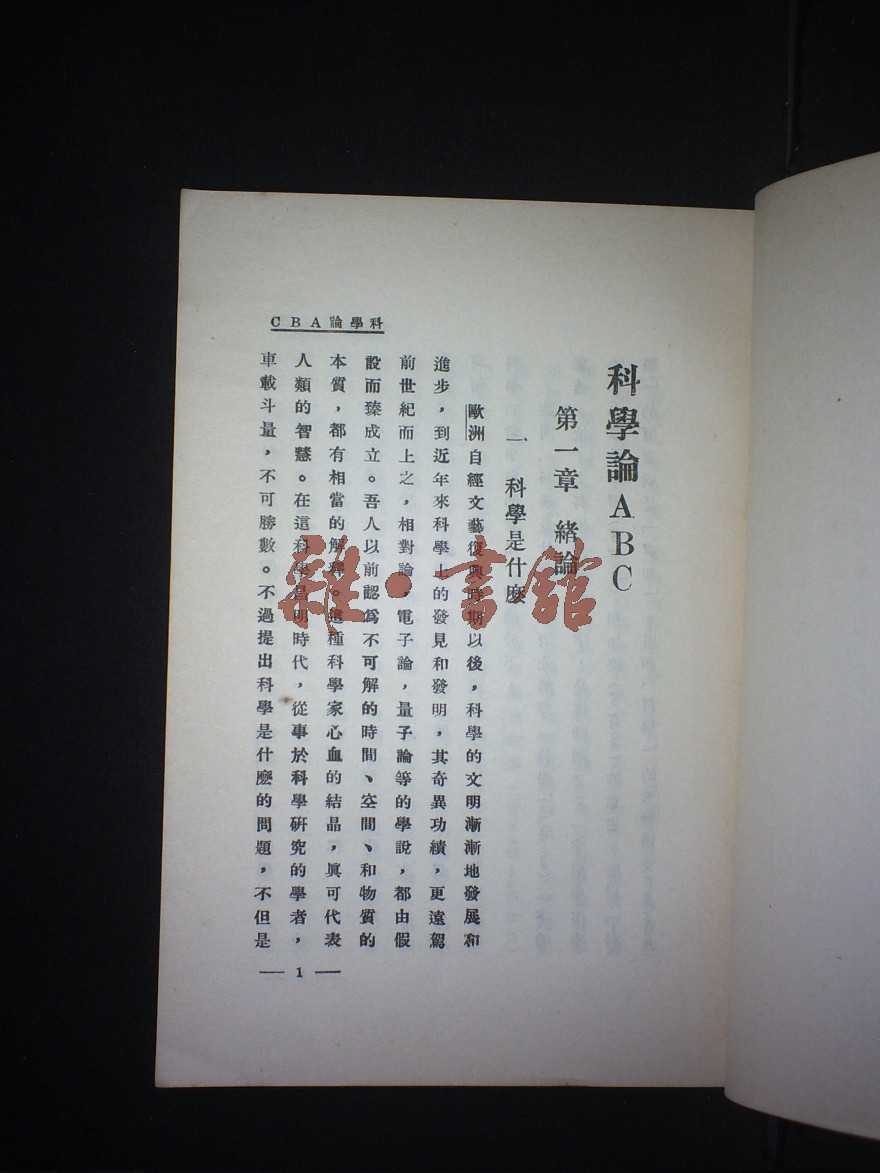 科學論ABC
第一章 緒論
一 科學是什麽
歐洲自經文藝復興時期以後，科學的文明漸漸地發展和
進步，到近年來科學上的發見和發明，其奇異功績，更遠駕
前世紀而上之，相對論，電子論，量子論等的學說，都由假
設而臻成立。吾人以前認爲不可解的時間、空間、和物質的
本質，都有相當的解釋。這種科學家心血的結晶，眞可代表
人類的智慧。在這科學昌明時代，從事於科學研究的學者，
車載斗量，不可勝數。不過提出科學是什麽的問題，不但是
CBA論學科
— 1 —
雜·書館